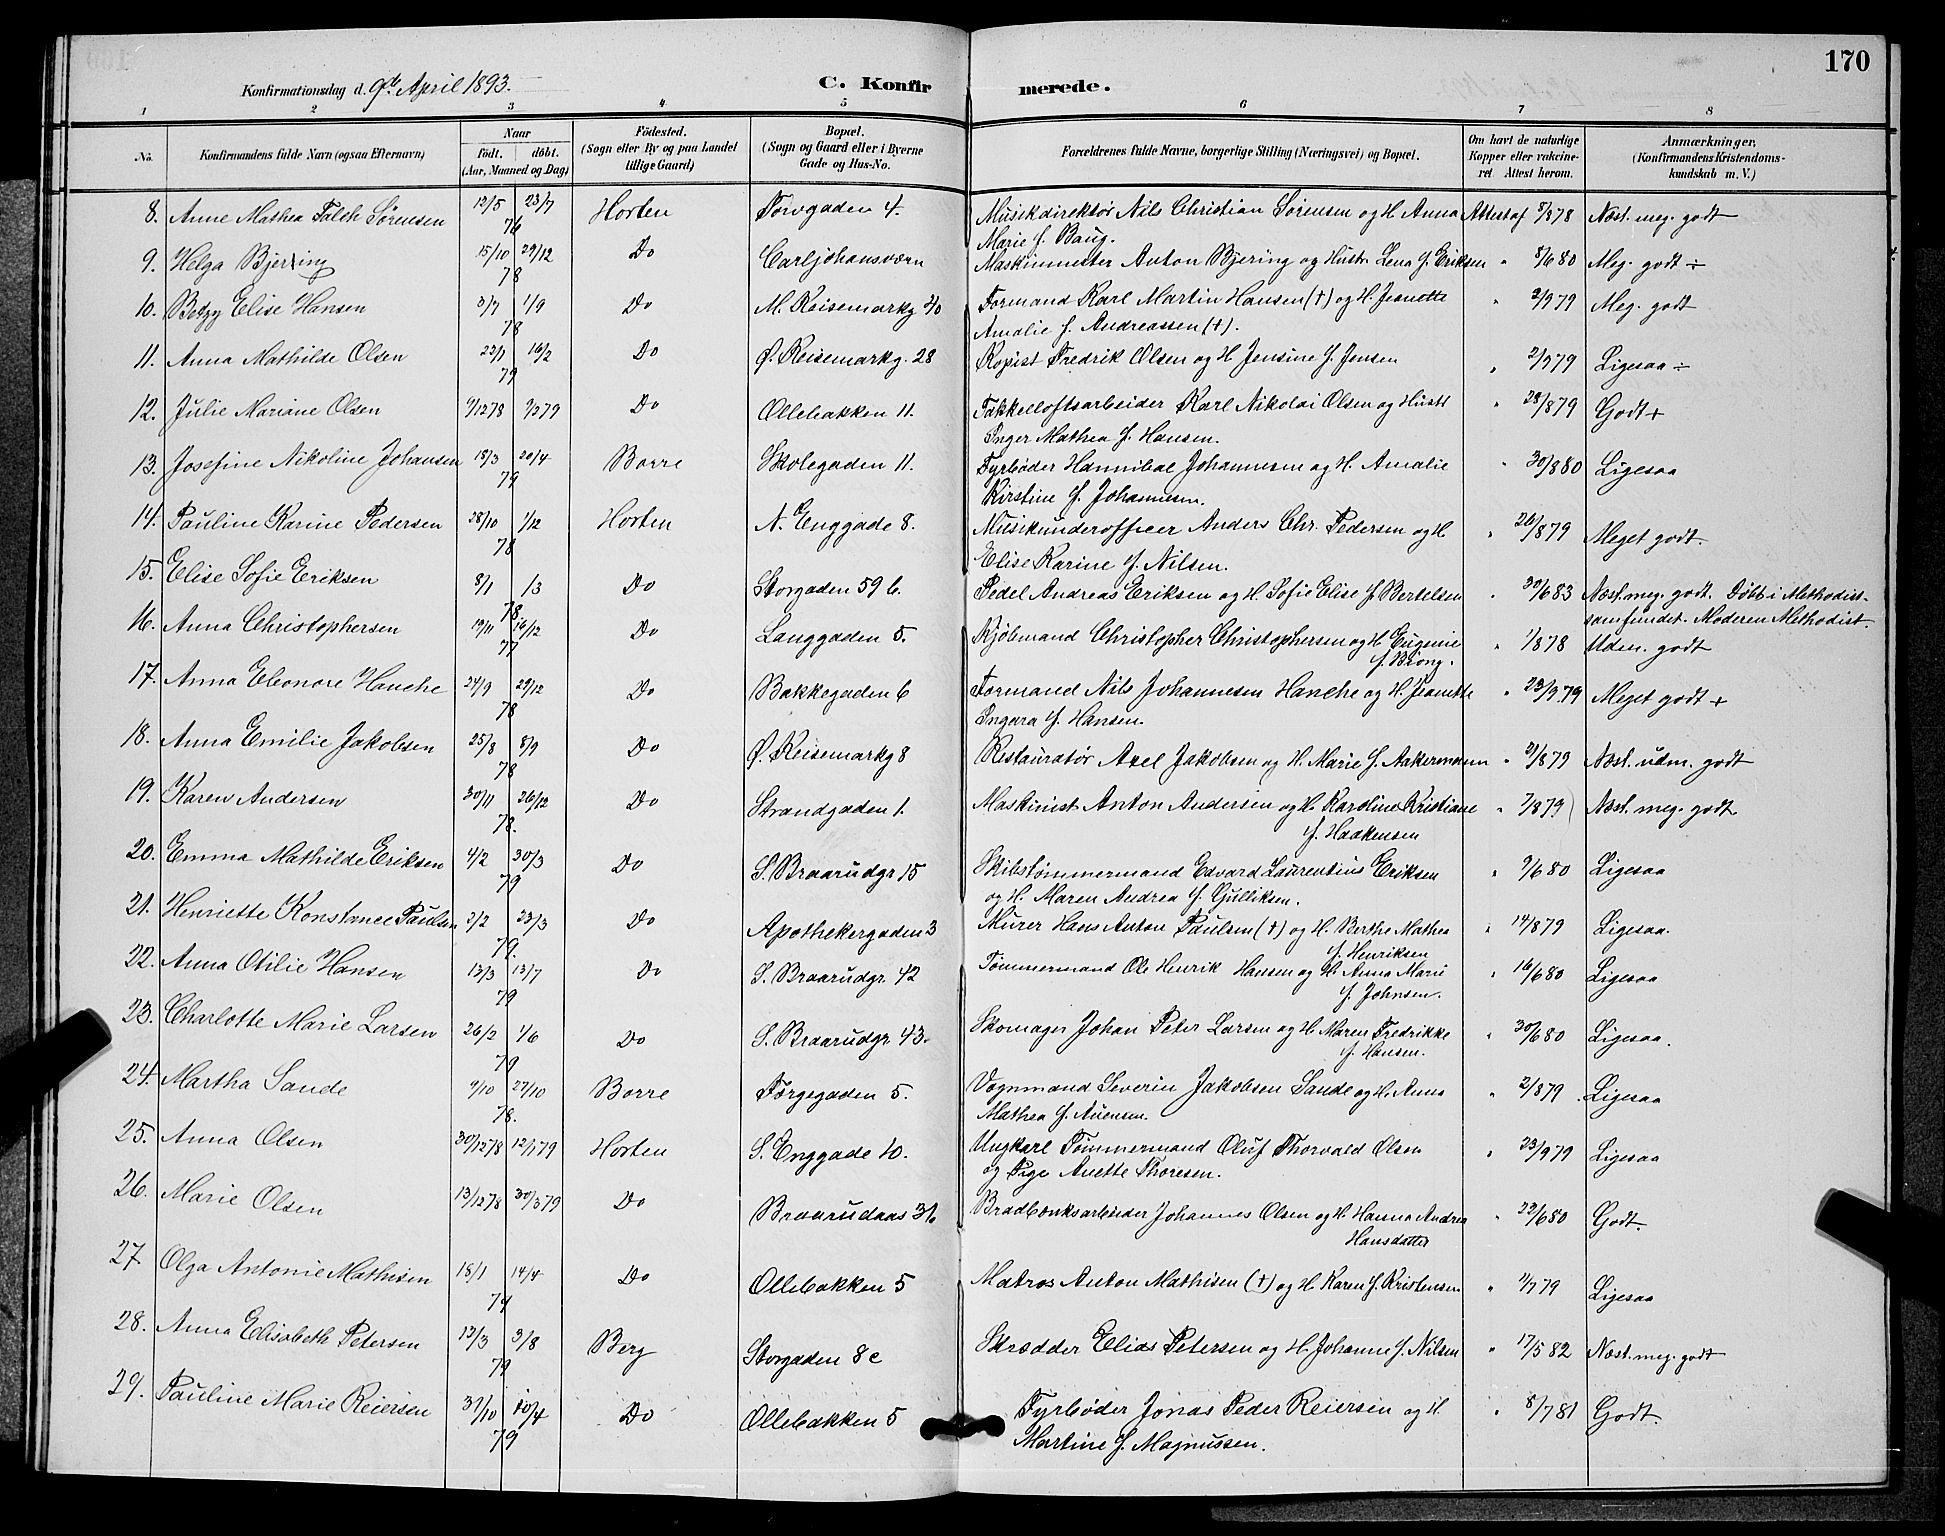 170
Konfirmationsdag d. 9de April 1893.
C. Konfirmerede.
1 2 3 4 5 6 7 8
No. Konfirmandens fulde Navn (ogsaa Efternavn) Naar født. døbt. (Aar, Maaned og Dag) Fødested. (Sogn eller By og paa Landet tillige Gaard) Bopæl. (Sogn og Gaard eller i Byerne Gade og Hus-No. Forældrenes fulde Navne, borgerlige Stilling (Næringsvei) og Bopæl. Om havt de naturlige Kopper eller vakcineret. Attest herom. Anmærkninger. (Konfirmandens Kristendomskundskab m. V.)
8. Anne Mathea Falch Sørensen 12/5 23/7 76 Horten Torvgaden 4. Musikdirektør Nils Christian Sørensen og H. Anna Attest af 8/878 Næst. meg. godt
Marie f. Baug.
9. Helga Bjerring 15/10 29/12 78 Do Carljohansværn Maskinmester Anton Bjering og Hustr. Lena f. Eriksen " 8/680 Meg. godt ÷
10. Betzy Elise Hansen 3/7 1/9 78 Do M. Reisemarkg 40 Formand Karl Martin Hansen (†) og H. Jeanette " 2/979 Meg. godt
Amalie f. Andreassen (†).
11. Anna Mathilde Olsen 23/1 16/2 79 Do Ø. Reisemarkg. 28 Kopist Fredrik Olsen og H Jensine f. Jensen " 2/979 Ligesaa ÷
12. Julie Mariane Olsen 9/1278 9/279 Do Ollebakken 11. Takkelloftsarbeider Karl Nikolai Olsen og Hustr " 28/879 Godt +
Inger Mathea f. Hansen.
13. Josefine Nikoline Johansen 18/3 20/4 79 Borre Skolegaden 11. Fyrbøder Hannibal Johannesen og H. Amalie " 30/880 Ligesaa
Kirstine f. Johannesen.
14. Pauline Karine Pedersen 28/10 1/12 78 Horten N. Enggade 8. Musikunderofficer Anders Chr. Pedersen og H " 26/879 Meget godt.
Elise Karine f. Nilsen.
15. Elise Sofie Eriksen 8/1 /3 78 Do Storgaden 59 b. Pedel Andreas Eriksen og H. Sofie Elise f Bertelsen " 30/683 Næst. meg. godt. Døbt i Methodist-
samfundet. Moderen Methodist.
16. Anna Christophersen 19/11 16/12 77 Do Langgaden 5. Kjøbmand Christopher Christophersen og H. Eugenie " 1/878 Udm. godt
f. Brong.
17. Anna Eleonore Hanche 24/9 29/12 78 Do Bakkegaden 6 Formand Nils Johannesen Hanche og H. Jeanette " 23/9.79 Meget godt +
Ingara f. Hansen.
18. Anna Emilie Jakobsen 25/8 8/9 78 Do Ø. Reisemarkg 8 Restauratør Axel Jakobsen og H. Marie f. Aakermann " 21/879 Næst. udm. godt
19. Karen Andersen 30/11 26/12 78. Do Strandgaden 1. Maskinist Anton Andersen og H. Karoline Kristiane " 7/879 Næst. meg. godt
f. Haakensen
20. Emma Mathilde Eriksen 4/2 30/3 79 Do S. Braarudgr 15 Skibstømmermand Edvard Laurentius Eriksen " 9/680 Ligesaa
og H. Maren Andrea f. Gulliksen.
21. Henriette Konstance Paulsen 2/2 23/3 79. Do Apothekergaden 3 Murer Hans Anton Paulsen (†) og H. Berthe Mathea " 14/879 Ligesaa.
f. Henriksen
22. Anna Otilie Hansen 13/3 13/7 79 Do S. Braarudgr. 42 Tømmermand Ole Henrik Hansen og H. Anna Marie " 16/680 Ligesaa
f. Johnsen.
23. Charlotte Marie Larsen 26/2 1/6 79 Do S. Braarudgr. 43. Skomager Johan Peter Larsen og H. Maren Fredrikke " 30/680 Ligesaa.
f. Hansen.
24. Martha Sande 9/10 27/10 78. Borre Torgegaden 5. Vognmand Severin Jakobsen Sande og H. Anna " 2/879 Ligesaa
Mathea f. Auensen.
25. Anna Olsen 30/1278 12/179 Horten S. Enggade 10. Ungkarl Tømmermand Oluf Thorvald Olsen " 23/979 Ligesaa
og Pige Anette Thoresen.
26. Marie Olsen 13/1278 30/379 Do Braarudaas 36 Bradbænksarbeider Johannes Olsen og H. Hanna Andrea " 22/680 Godt.
Hansdatter
27 Olga Antonie Mathisen 18/1 14/4 79 Do Ollebakken 5 Matros Anton Mathisen (†) og H. Karen f. Kristensen " 1/779 Ligesaa
28. Anna Elisabeth Petersen 13/3 3/8 79 Berg Storgaden 8c Skrædder Elias Petersen og H. Johanne f. Nilsen " 17/582 Næst. meg. godt
29. Pauline Marie Reiersen 31/10 10/4 79 Do Ollebakken 5 Fyrbøder Jonas Peder Reiersen og H. " 8/781 Godt.
Martine f. Magnussen.